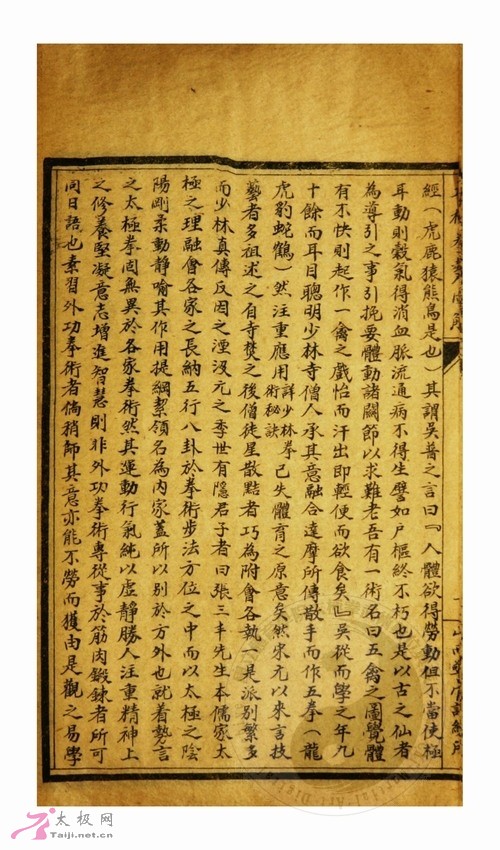 經（虎鹿猿熊鳥是也）其謂吳普之言曰『人體欲得勞動但不當使極
耳動則穀氣得消血脈流通病不得生譬如戶樞終不朽也是以古之仙者
為導引之事引挽要體動諸關節以求難老吾有一術名曰五禽之圖覺體
有不快則起作一禽之戲怡而汗出即輕便而欲食矣』吳從而學之年九
十餘而耳目聰明少林寺僧人承其意融合達摩所傳散手而作五拳（龍
虎豹蛇鶴）然注重應用詳少林拳術秘訣已失體育之原意矣然宋元以來言技
藝者多祖述之自寺焚之後僧徒星散黠者巧為附會各執一是派別繁多
而少林真傳反因之湮沒元之季世有隱君子者曰張三丰先生本儒家太
極之理融會各家之長納五行八卦於拳術步法方位之中而以太極之陰
陽剛柔動靜喻其作用提綱絜領名為內家蓋所以別於方外也就着勢言
之太極拳固無異於各家拳術然其運動行氣純以虛靜勝人注重精神上
之修養堅凝意志增進智慧則非外功拳術專從事於筋肉鍛鍊者所可
同日語也素習外功拳術者倘稍師其意亦能不勞而獲由是觀之易學
太极网
Taiji.net.cn